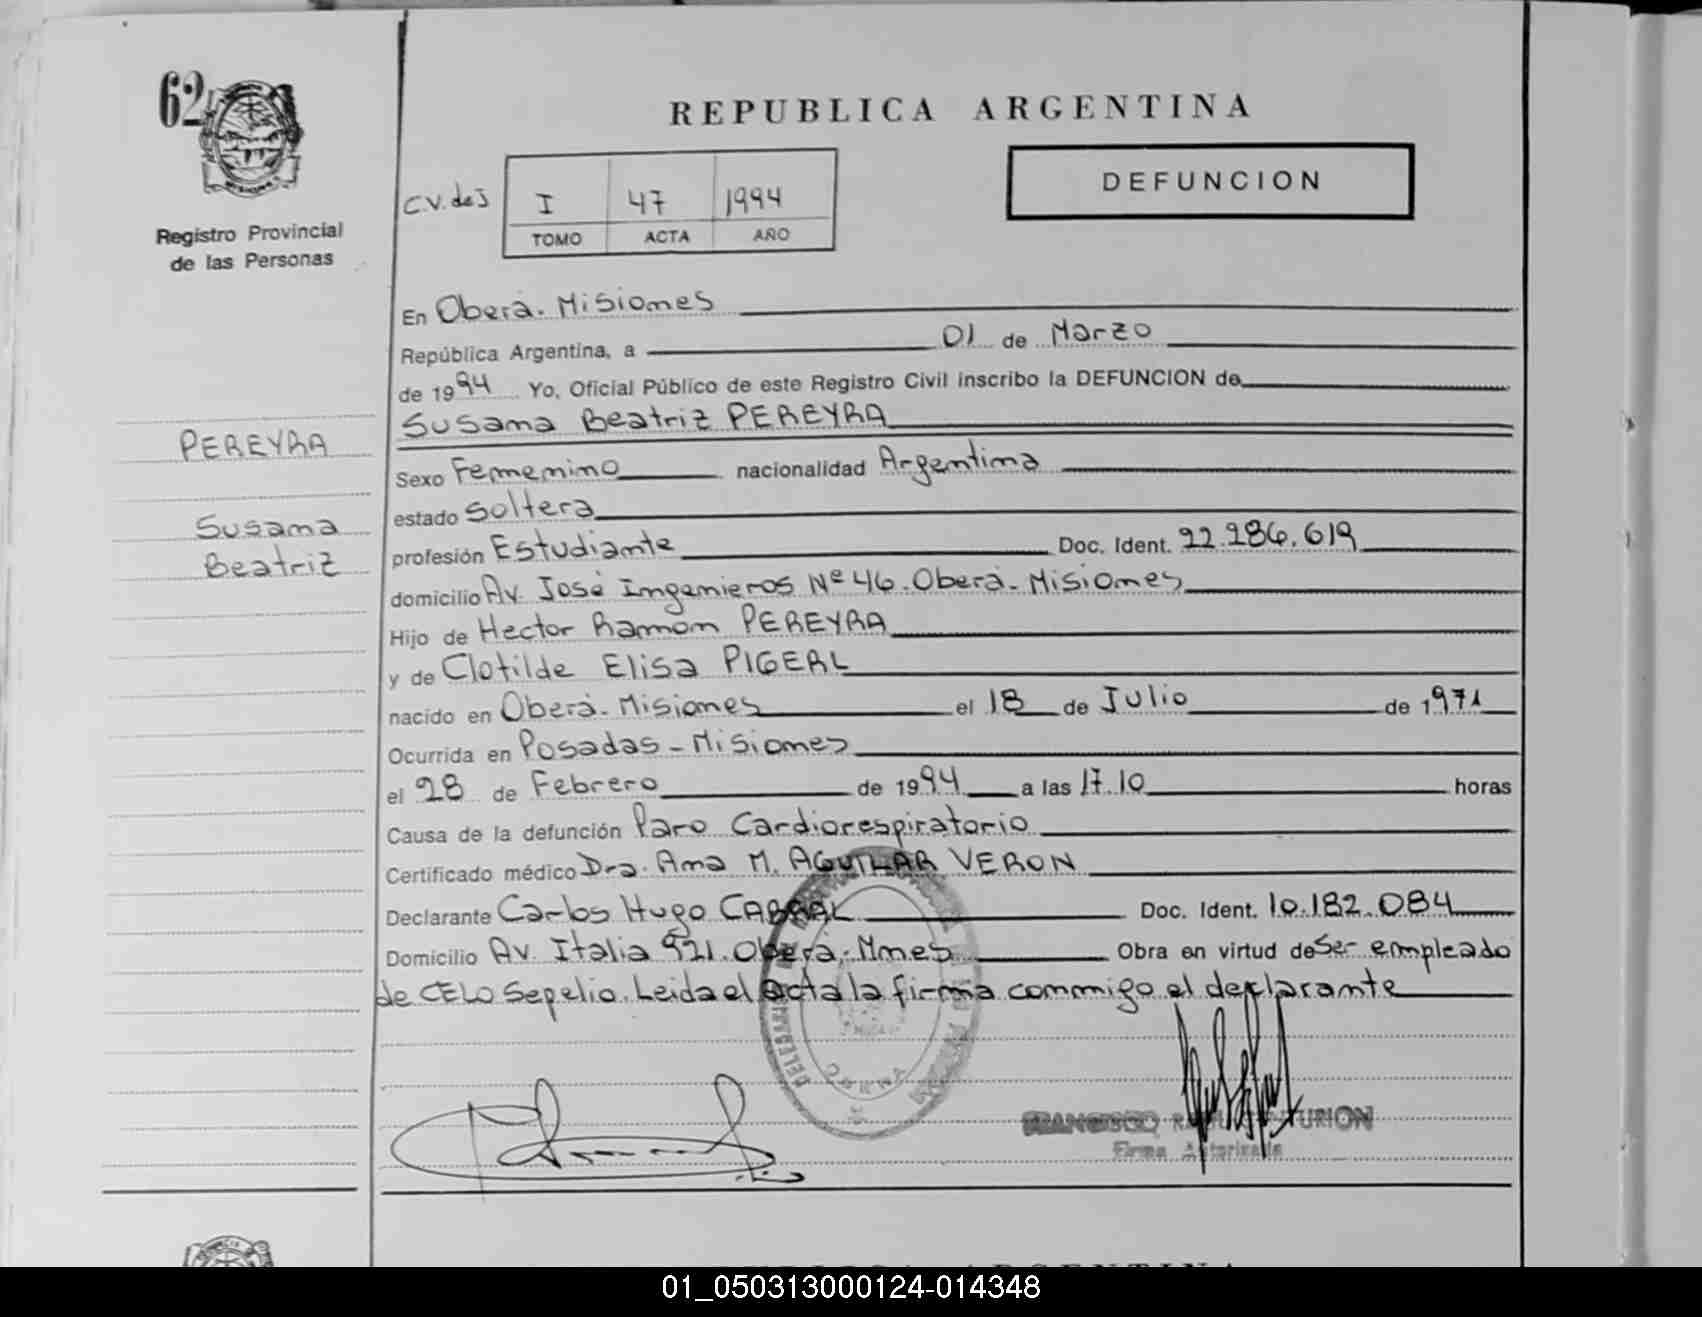 62
REPUBLICA ARGENTINA
DEFUNCION
C.V. de J I 47 1994
TOMO ACTA AÑO
Registro Provincial
de las Personas
En Oberá. Misiones
República Argentina, a 01 de Marzo
de 1994 Yo, Oficial Público de este Registro Civil inscribo la DEFUNCION de
Susana Beatriz PEREYRA
PEREYRA
Susana
Beatriz
Sexo Femenino nacionalidad Argentina
estado Soltera
profesión Estudiante Doc. Ident. 22.286.619
domicilio Av. José Ingenieros Nº 46. Oberá. Misiones
Hijo de Hector Ramon PEREYRA
y de Clotilde Elisa PIGERL
nacido en Oberá. Misiones el 18 de Julio de 1971
Ocurrida en Posadas - Misiones
el 28 de Febrero de 1994 a las 17.10 horas
Causa de la defunción Paro Cardiorespiratorio
Certificado médico Dra. Ana M. AGUILAR VERON
Declarante Carlos Hugo CABRAL Doc. Ident. 10.182.084
Domicilio Av. Italia 921. Oberá. Mnes Obra en virtud de Ser empleado
de CELO Sepelio. Leida el acta la firma conmigo el declarante
FRANCISCO RAUL CENTURION
Firma Autorizada
01_050313000124-014348